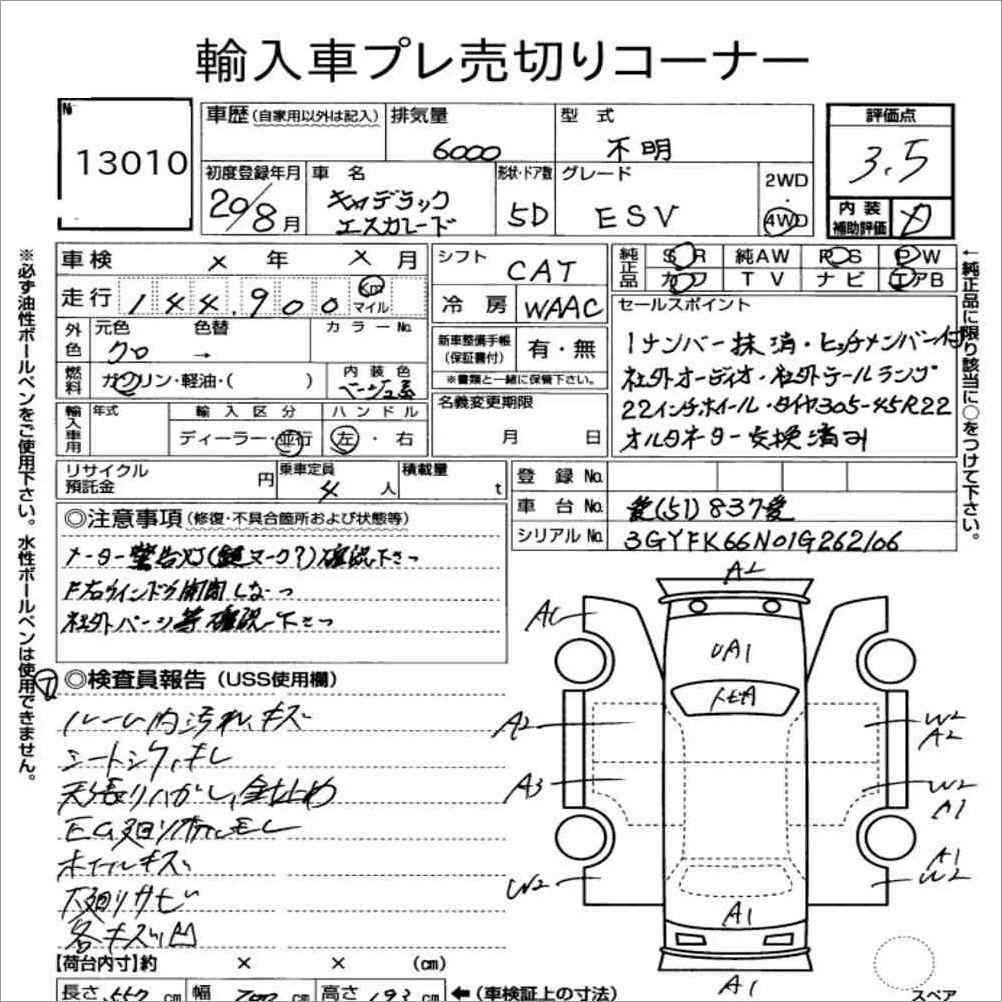 輸入車プレ売切りコーナー
№ 13010
車歴 (自家用以外は記入) 排気量 6000 型式 不明 評価点 3.5
初度登録年月 20/8月 車名 キャデラック エスカレード 形状・ドア数 5D グレード ESV 2WD 4WD 内装補助評価 D
車検 × 年 × 月
走行 144,900 km マイル
外色 元色 クロ 色替 → カラーNo.
燃料 ガソリン・軽油・( ) 内装色 ベージュ系
輸入車用 年式 輸入区分 ディーラー・並行 ハンドル 左・右
シフト CAT
冷房 WAAC
新車整備手帳(保証書付) 有・無
※書類と一緒に保管下さい。
名義変更期限 月 日
純正品 SR 純AW PS PW
カワ TV ナビ エアB
セールスポイント
1ナンバー抹消・ヒッチメンバー付
社外オーディオ・社外テールランプ
22インチホイール・タイヤ305-45R22
オルタネーター交換済み
←純正品に限り該当に○をつけて下さい。
※必ず油性ボールペンをご使用下さい。水性ボールペンは使用できません。
リサイクル預託金 円 乗車定員 4人 積載量 t
登録No.
車台No. 愛(51)837愛
シリアルNo. 3GYFK66N01G262106
◎注意事項(修復・不具合箇所および状態等)
メーター警告灯(鍵マーク?)確認下さい
F右ウインドウ開閉しない
社外パーツ等確認下さい
◎検査員報告(USS使用欄)
ルーム内汚れ、キズ
シートシワ、キレ
天張りハガレ、金止め
EG廻り
ホイールキズ
下廻りサビ
各キズ、凹
A2
A1
UA1
トビA
A2
W2
A2
A3
W2
A1
A1
W2
W2
A1
A1
スペア
【荷台内寸】約 × × (cm)
長さ 557 cm 幅 cm 高さ 193 cm ←(車検証上の寸法)